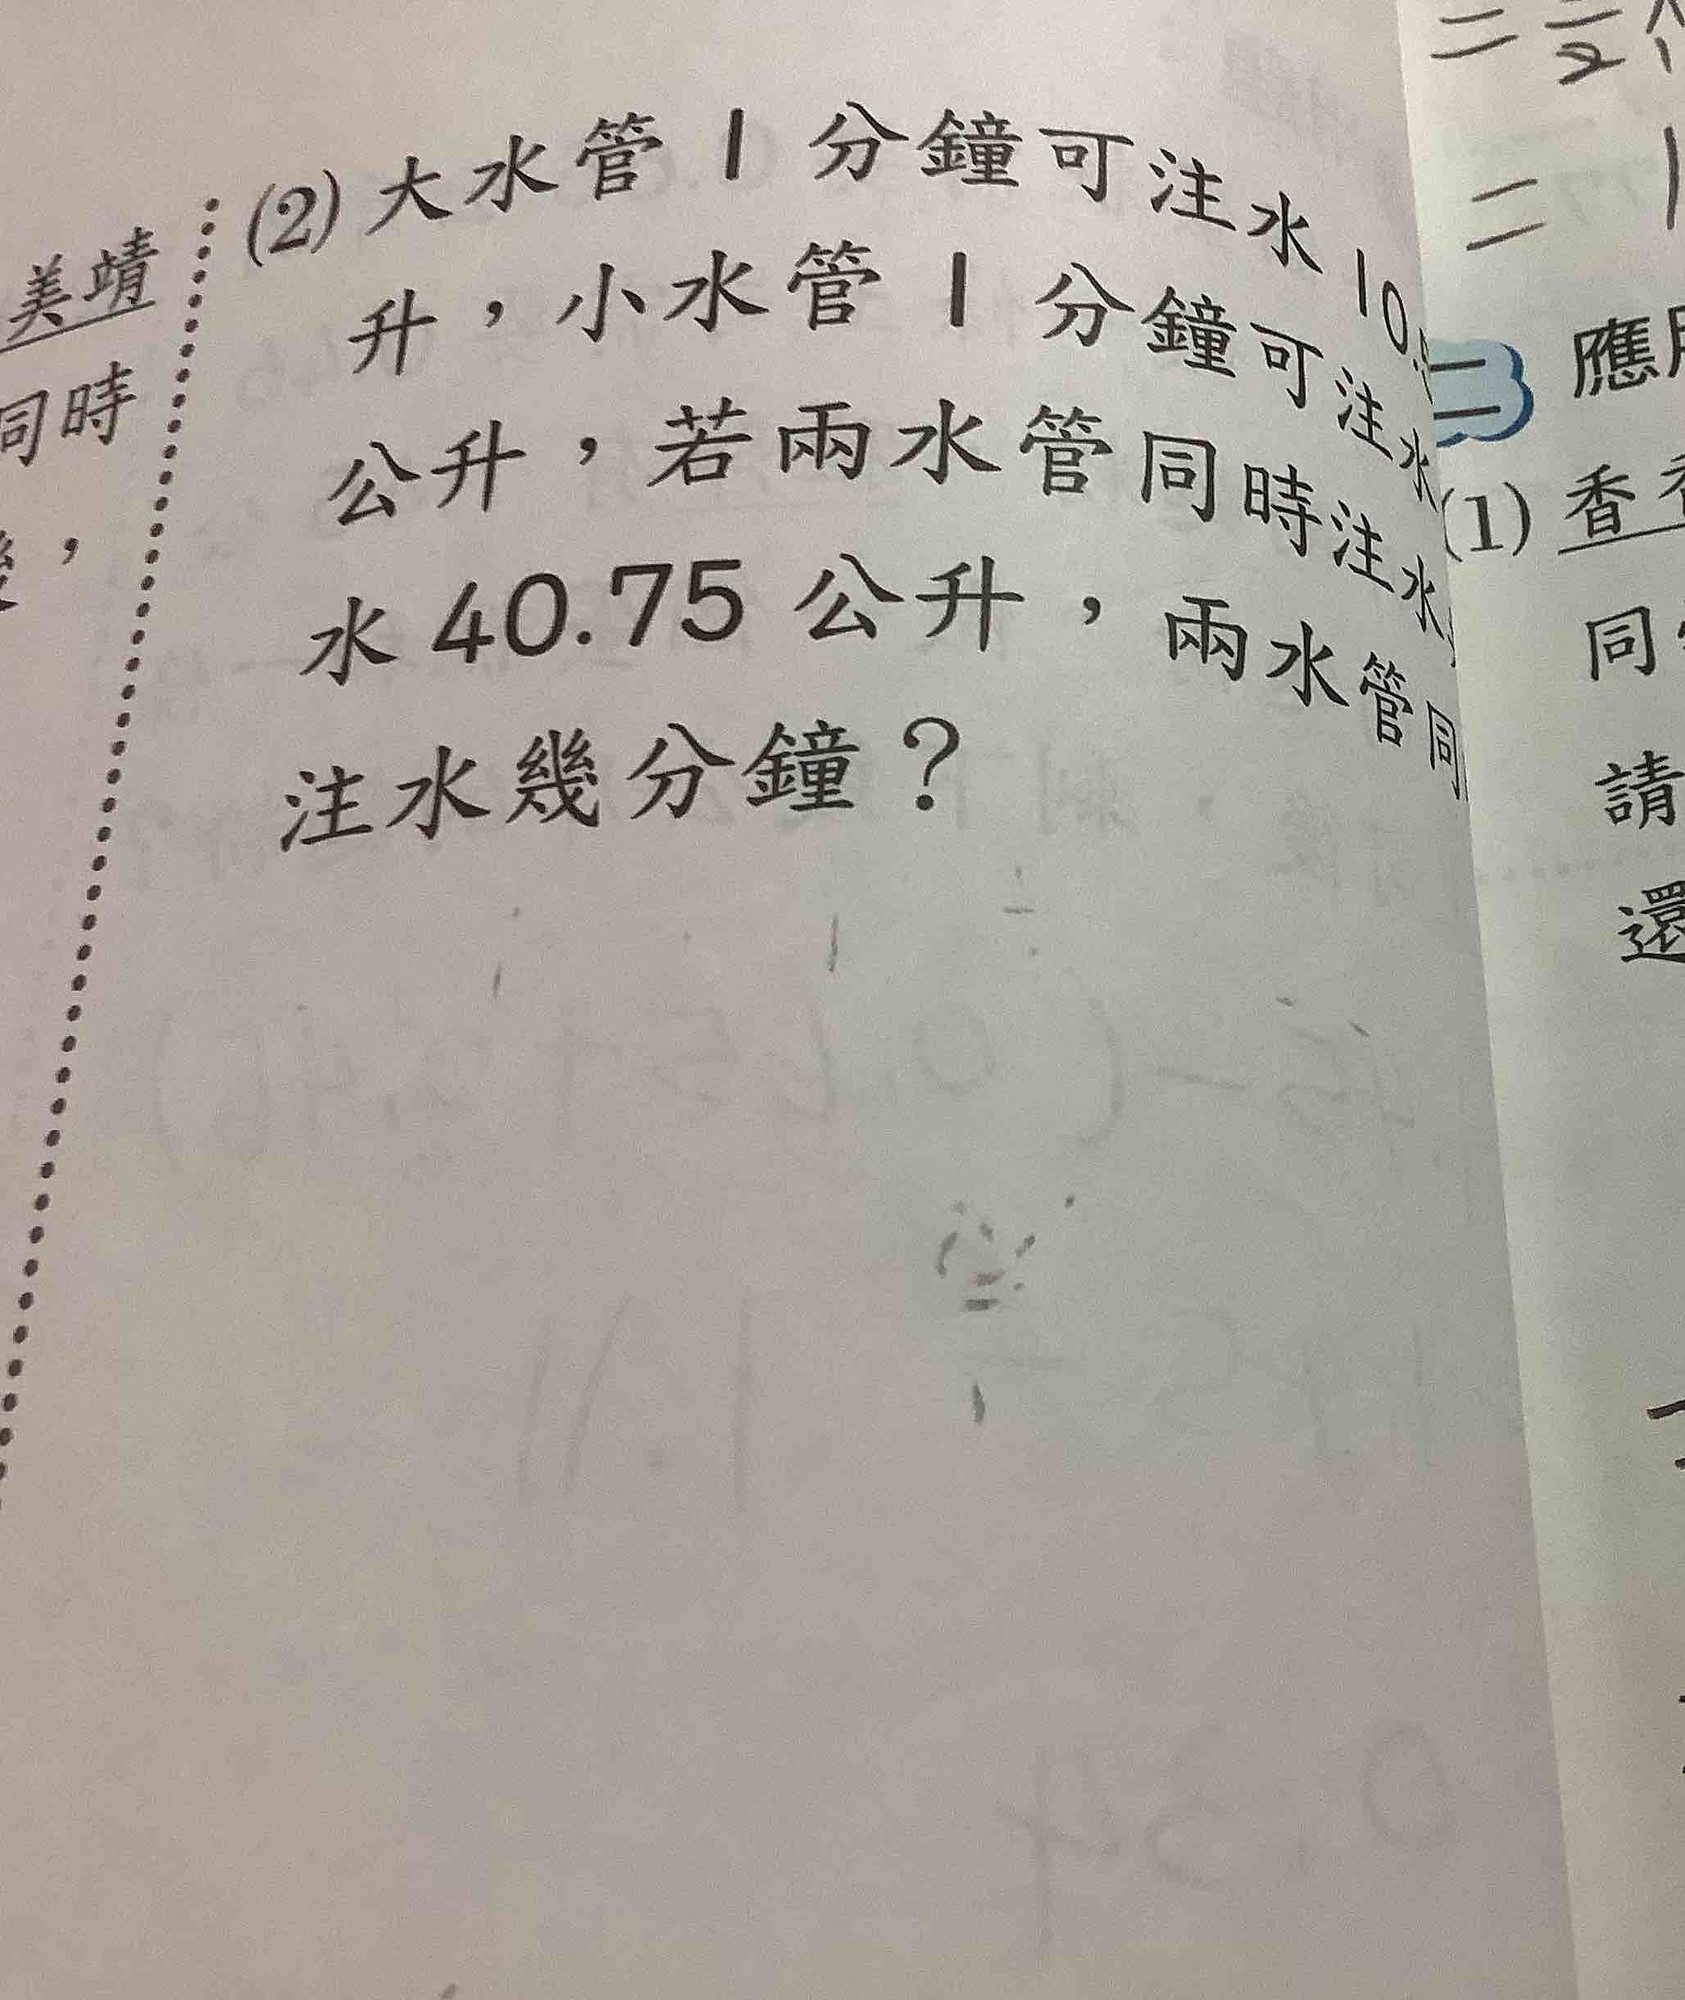 美靖
同時
，
(2) 大水管 1 分鐘可注水 10
升，小水管 1 分鐘可注水
公升，若兩水管同時注水
水 40.75 公升，兩水管同
注水幾分鐘？
二
應
(1) 香
同
請
還